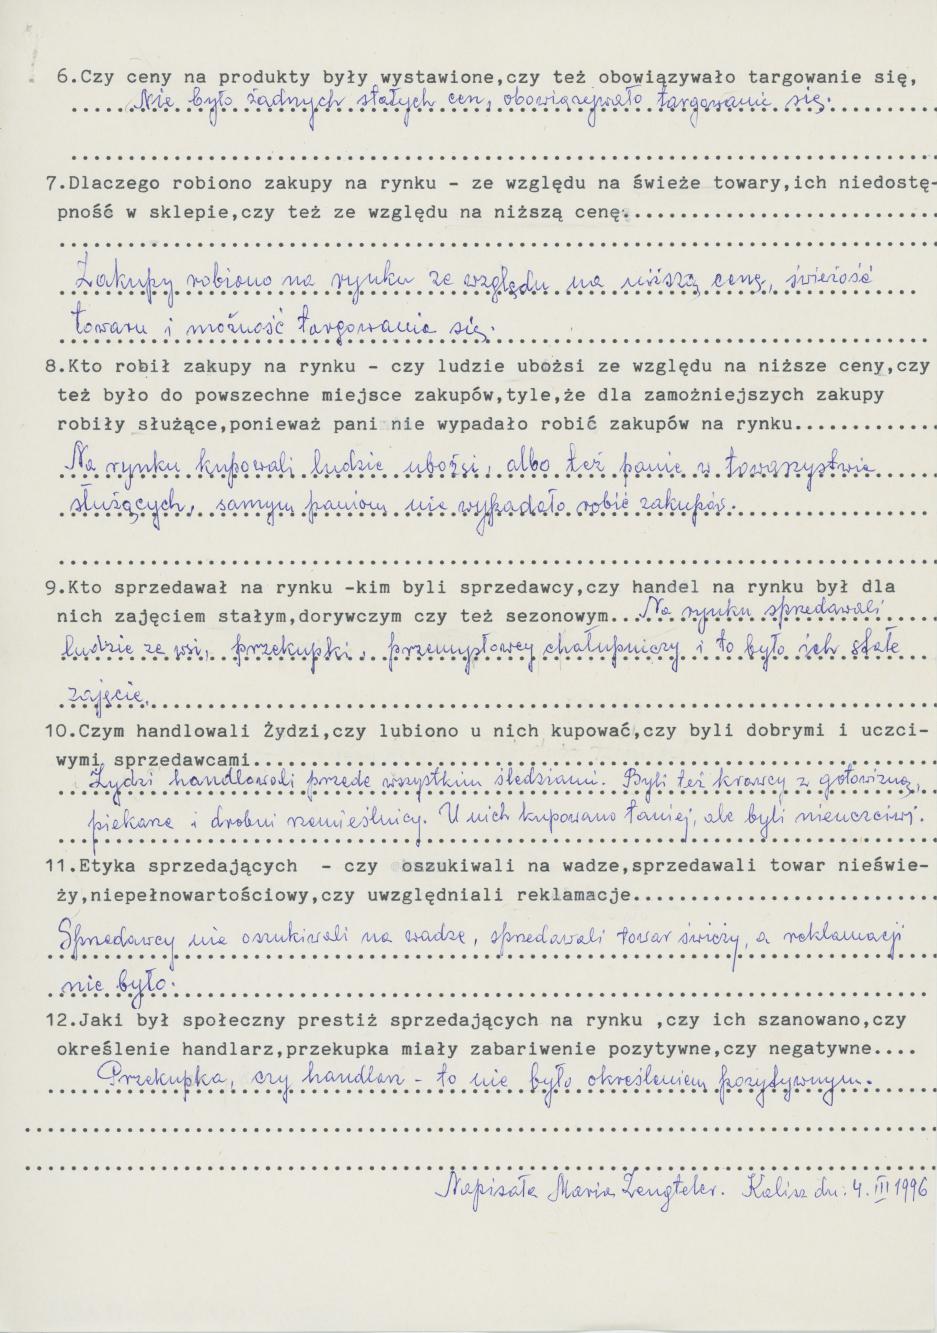 6.Czy ceny na produkty były wystawione,czy też obowiązywało targowanie się,
Nie było żadnych stałych cen, obowiązywało targowanie się.
7.Dlaczego robiono zakupy na rynku - ze względu na świeże towary,ich niedostę-
pność w sklepie,czy też ze względu na niższą cenę.
Zakupy robiono na rynku ze względu na niższą cenę, świeżość
towaru i możność targowania się.
8.Kto robił zakupy na rynku - czy ludzie ubożsi ze względu na niższe ceny,czy
też było do powszechne miejsce zakupów,tyle,że dla zamożniejszych zakupy
robiły służące,ponieważ pani nie wypadało robić zakupów na rynku.
Na rynku kupowali ludzie ubożsi, albo też panie w towarzystwie
służących, samym paniom nie wypadało robić zakupów.
9.Kto sprzedawał na rynku -kim byli sprzedawcy,czy handel na rynku był dla
nich zajęciem stałym,dorywczym czy też sezonowym... Na rynku sprzedawali
ludzie ze wsi, przekupki, przemysłowcy chałupniczy i to było ich stałe
zajęcie.
10.Czym handlowali Żydzi,czy lubiono u nich kupować,czy byli dobrymi i uczci-
wymi sprzedawcami
Żydzi handlowali przede wszystkim śledziami. Byli też krawcy z gotowizną,
piekarze i drobni rzemieślnicy. U nich kupowano taniej, ale byli nieuczciwi.
11.Etyka sprzedających - czy oszukiwali na wadze,sprzedawali towar nieświe-
ży,niepełnowartościowy,czy uwzględniali reklamacje
Sprzedawcy nie oszukiwali na wadze, sprzedawali towar świeży, a reklamacji
nie było.
12.Jaki był społeczny prestiż sprzedających na rynku ,czy ich szanowano,czy
określenie handlarz,przekupka miały zabariwenie pozytywne,czy negatywne....
Przekupka, czy handlarz - to nie było określeniem pozytywnym.
Napisała Maria Zengteler. Kalisz dn. 4. III 1996